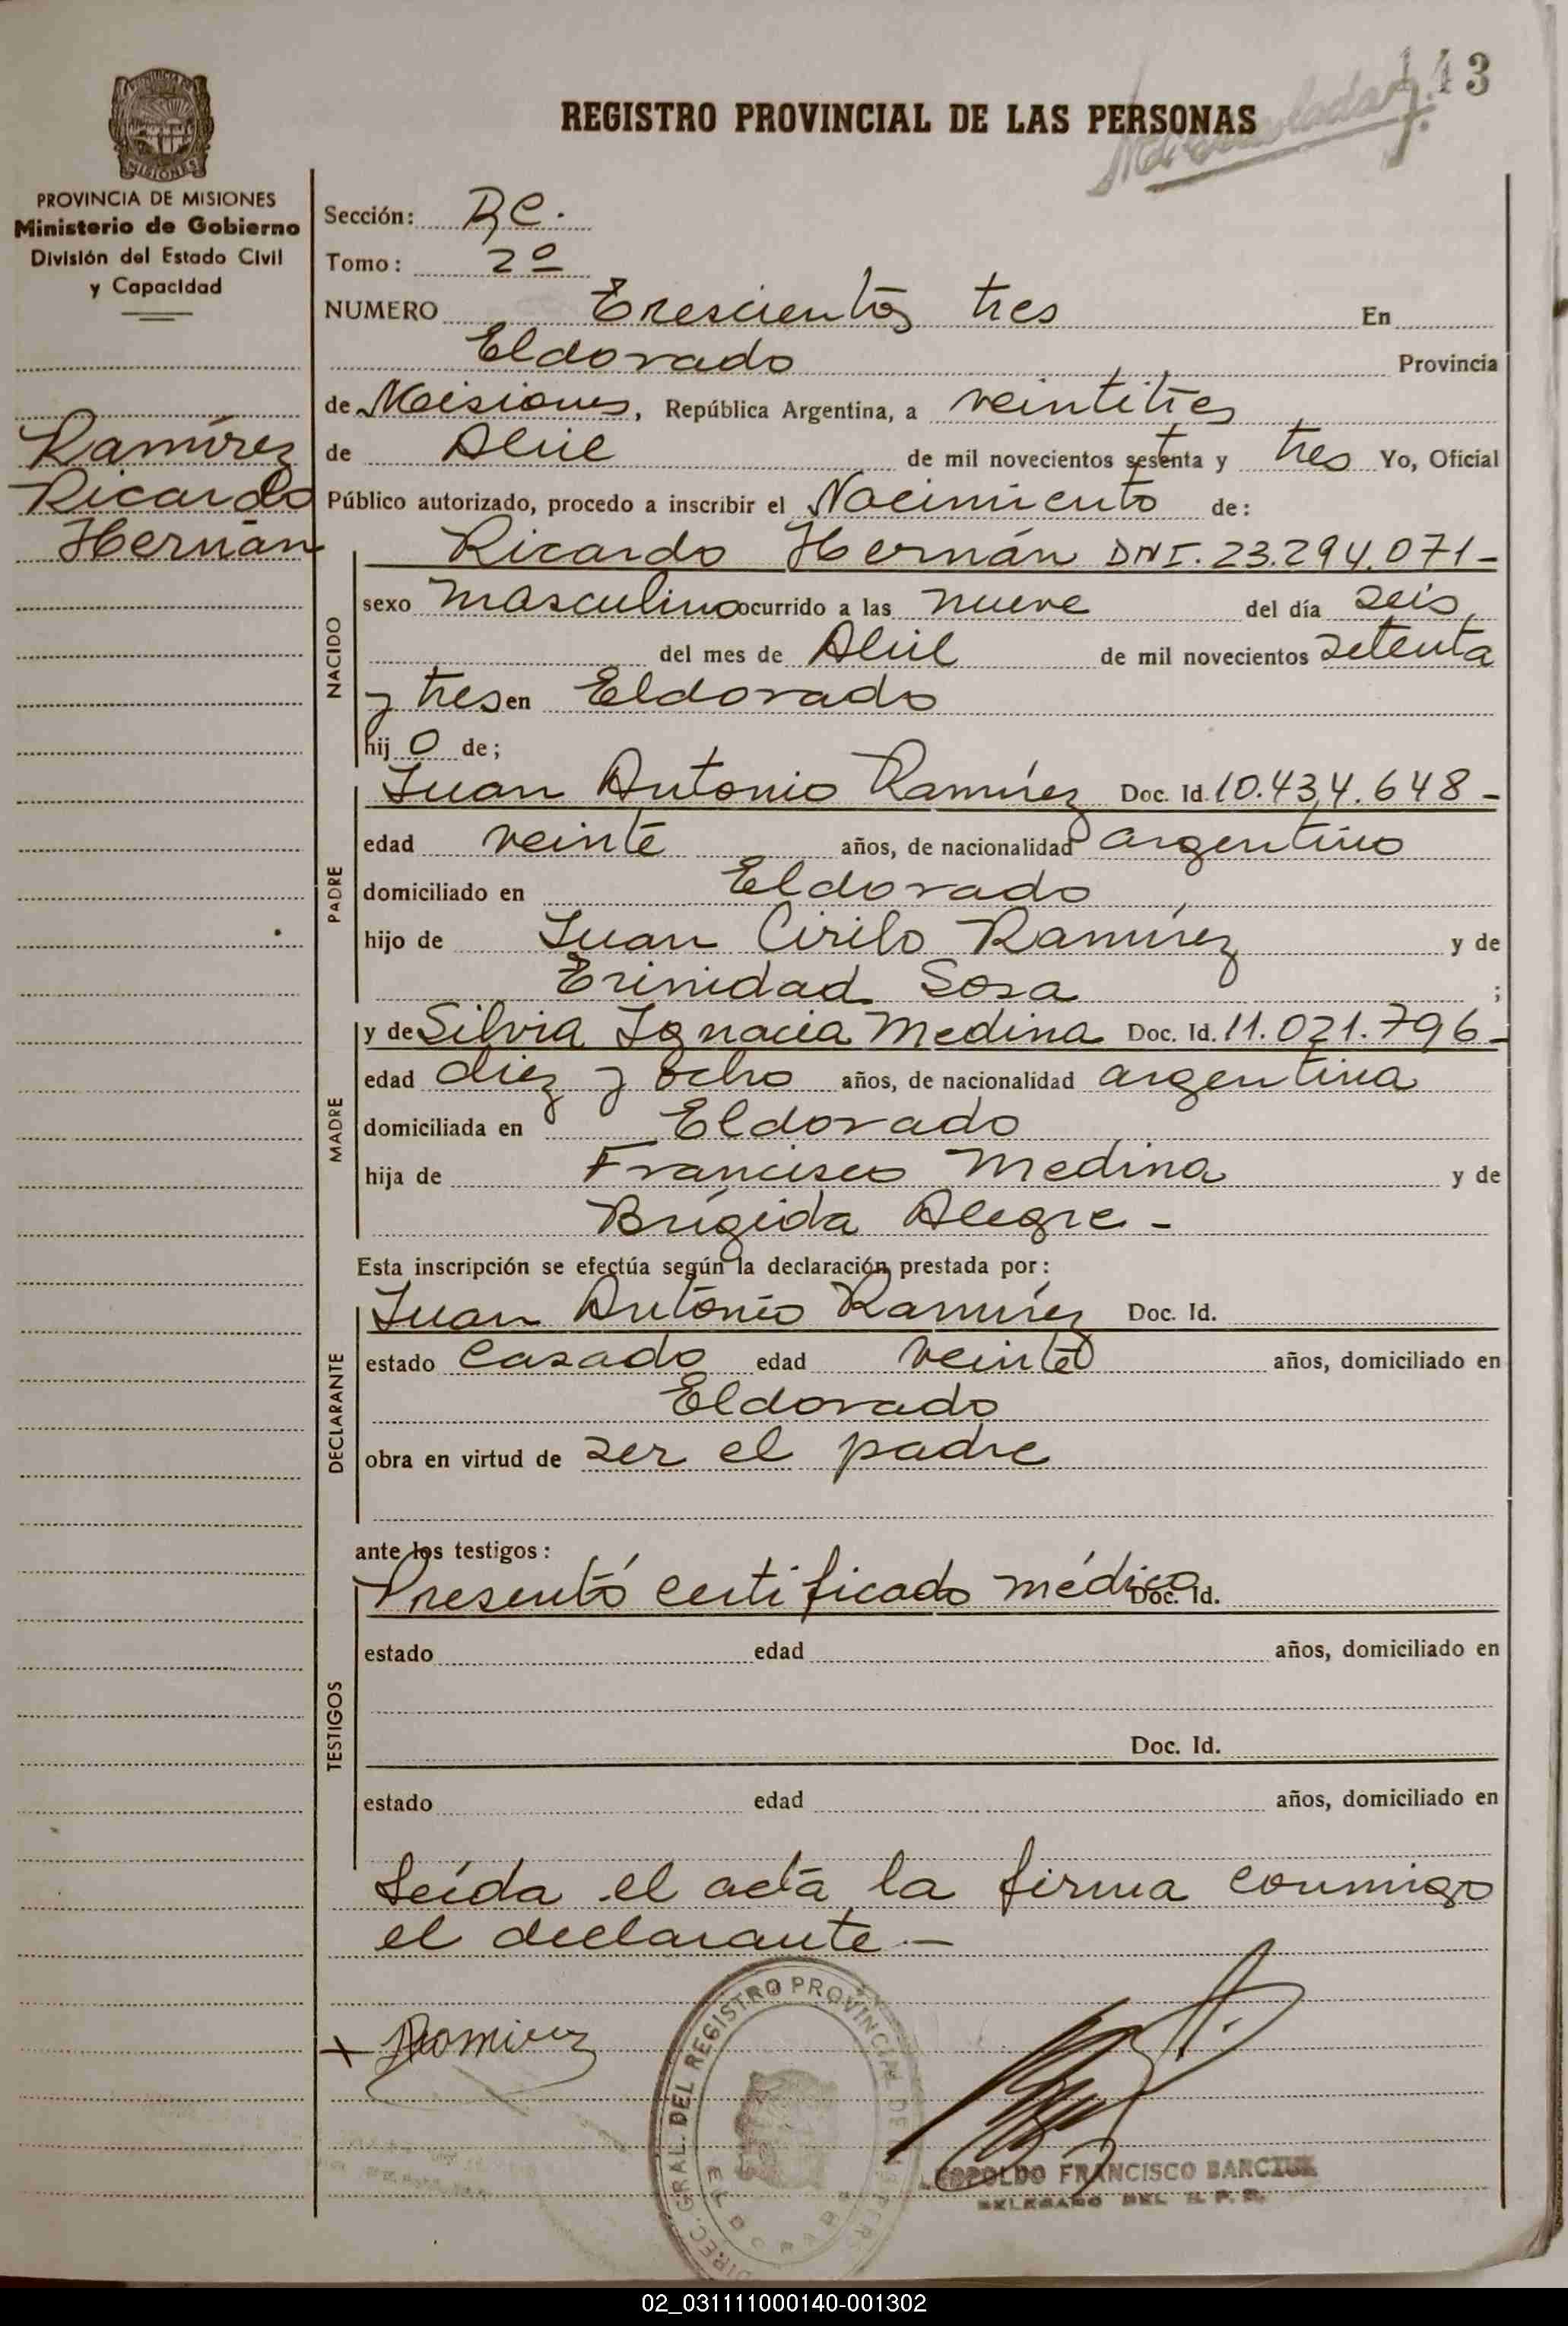 143
REGISTRO PROVINCIAL DE LAS PERSONAS
MISIONES
PROVINCIA DE MISIONES
Ministerio de Gobierno
División del Estado Civil
y Capacidad
Ramírez
Ricardo
Hernán
Sección:
Tomo: 2º
NUMERO Trescientos tres En
Eldorado Provincia
de Misiones, República Argentina, a veintitres
de Abril de mil novecientos setenta y tres Yo, Oficial
Público autorizado, procedo a inscribir el Nacimiento de:
Ricardo Hernán DNI. 23.294.071-
NACIDO
sexo masculino ocurrido a las nueve del día seis
del mes de Abril de mil novecientos setenta
y tres en Eldorado
hij o de;
PADRE
Juan Antonio Ramírez Doc. Id. 10.434.648-
edad veinte años, de nacionalidad argentino
domiciliado en Eldorado
hijo de Juan Cirilo Ramírez y de
Trinidad Sosa ;
MADRE
y de Silvia Ignacia Medina Doc. Id. 11.021.796-
edad diez y ocho años, de nacionalidad argentina
domiciliada en Eldorado
hija de Francisco Medina y de
Brígida Alegre -
Esta inscripción se efectúa según la declaración prestada por:
DECLARANTE
Juan Antonio Ramírez Doc. Id.
estado casado edad veinte años, domiciliado en
Eldorado
obra en virtud de ser el padre
ante los testigos:
TESTIGOS
Presentó certificado médico Doc. Id.
estado edad años, domiciliado en
Doc. Id.
estado edad años, domiciliado en
Leída el acta la firma conmigo
el declarante.-
x Ramirez
DIREC. GRAL. DEL REGISTRO PROVINCIAL DE
ELDORADO
LEOPOLDO FRANCISCO BARCZUK
DELEGADO DEL R. P. P.
02_031111000140-001302